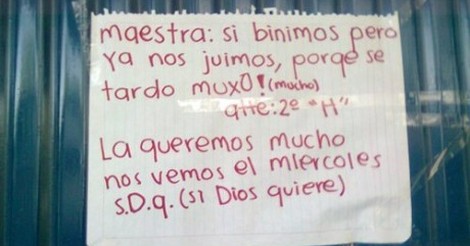 maestra: si binimos pero
ya nos juimos, porqe se
tardo muxo! (mucho)
atte: 2º "H"
La queremos mucho
nos vemos el miercoles
s.D.q. (si Dios quiere)